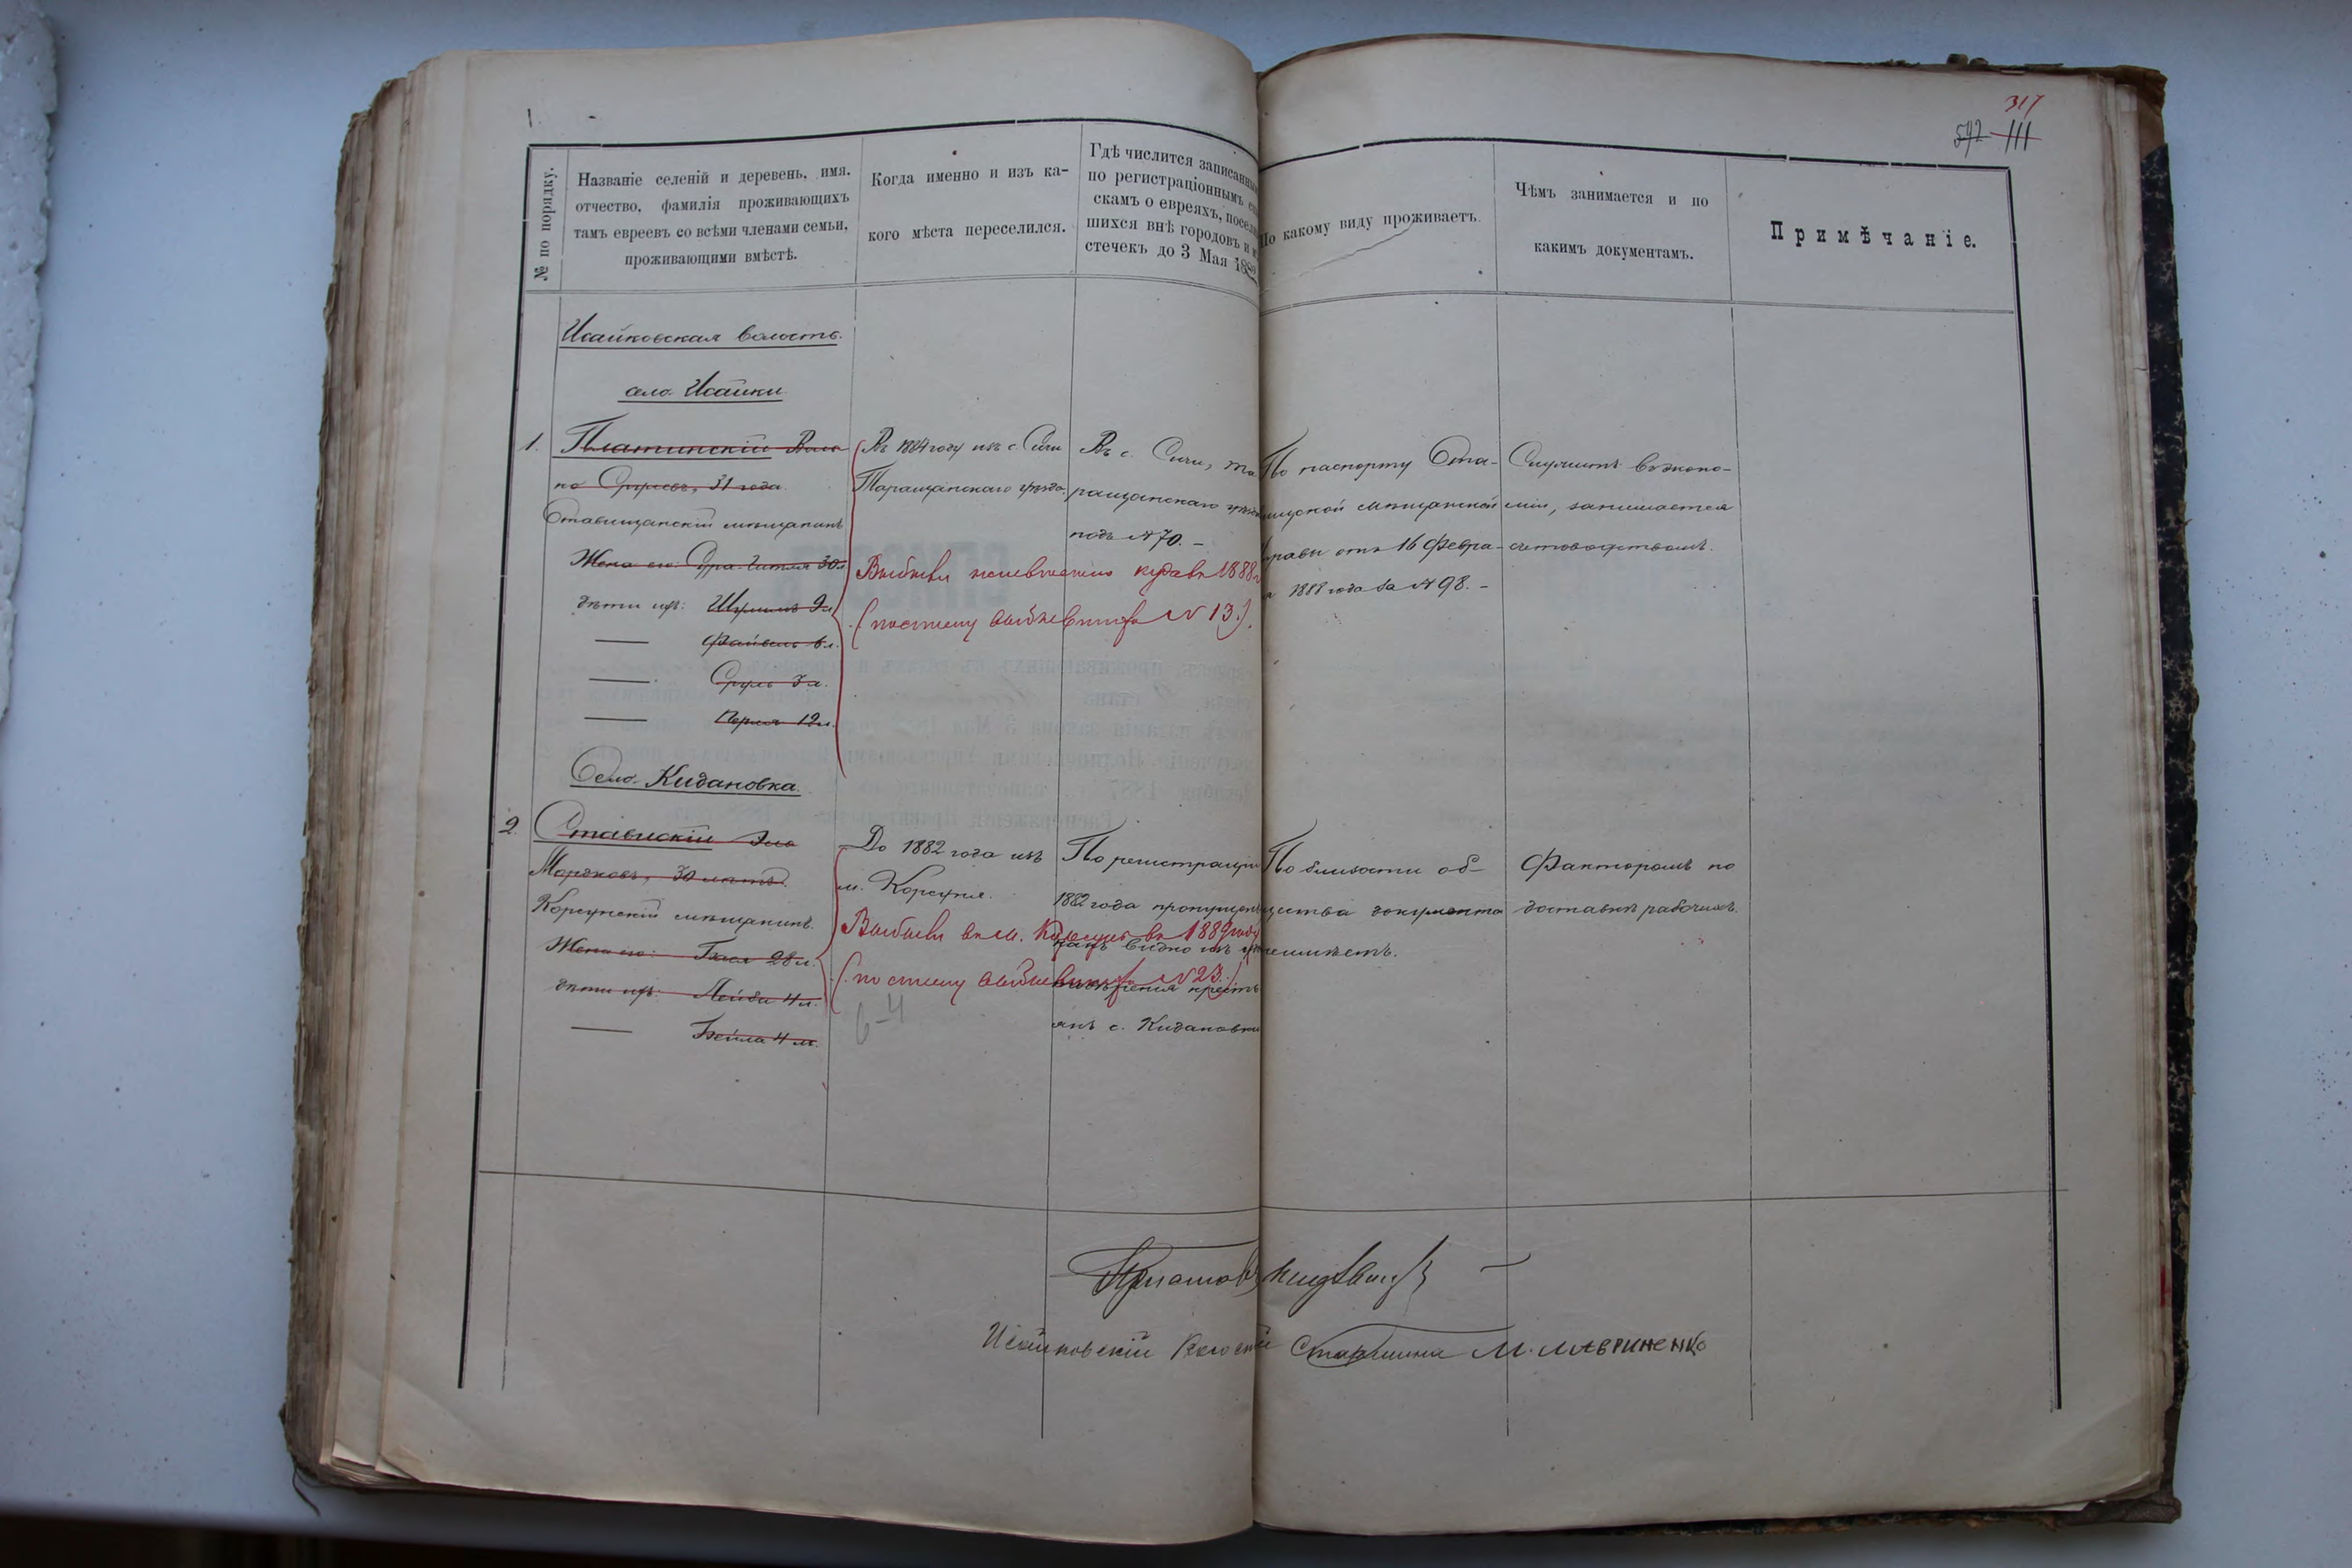 317
592 111
№ по порядку.
Названіе селеній и деревень, имя,
отчество, фамилія проживающихъ
тамъ евреевъ со всѣми членами семьи,
проживающими вмѣстѣ.
Когда именно и изъ ка-
кого мѣста переселился.
Гдѣ числится записанным
по регистраціоннымъ сп
скамъ о евреяхъ, посел
шихся внѣ городовъ и м
стечекъ до 3 Мая 1882
По какому виду проживаетъ.
Чѣмъ занимается и по
какимъ документамъ.
Примѣчаніе.
Исайковская волость.
село Исайки
1.
Платинскій
Сруллевъ, 31 года
Ставищанскій мѣщанинъ
Жена его: 30 л
дѣти ихъ: 9 л
Файвель 6 л.
Сруль 3 л.
Перля 12 л.
Въ 1884 году изъ с. Сичи
Таращанскаго уѣзда
Въ с. Сичи, та
ращанскаго уѣзда
подъ № 70. –
По паспорту Ста-
вищской мѣщанской
управы отъ 16 февра-
1888 года за № 98. –
Служитъ въ эконо-
міи, занимается
счетоводствомъ.
Выбылъ 1888
№ 13.).
Село Кидановка.
2.
Ставискій Эло
Мордковъ, 30 лѣтъ.
Корсунскій мѣщанинъ.
Жена его: Бася 28 л.
дѣти ихъ: Лейба 4 л.
Бейла 4 м.
До 1882 года изъ
м. Корсуня.
По регистраціи
1882 года пропущенъ
какъ видно изъ
крестьянъ
с. Кидановки
По близости об-
щества документа
не имѣетъ.
Факторомъ по
доставкѣ рабочихъ.
Выбылъ въ м. въ 1889 году
№ 23.)
6-4
Исайковскій Волостной Старшина М. Лавриненко